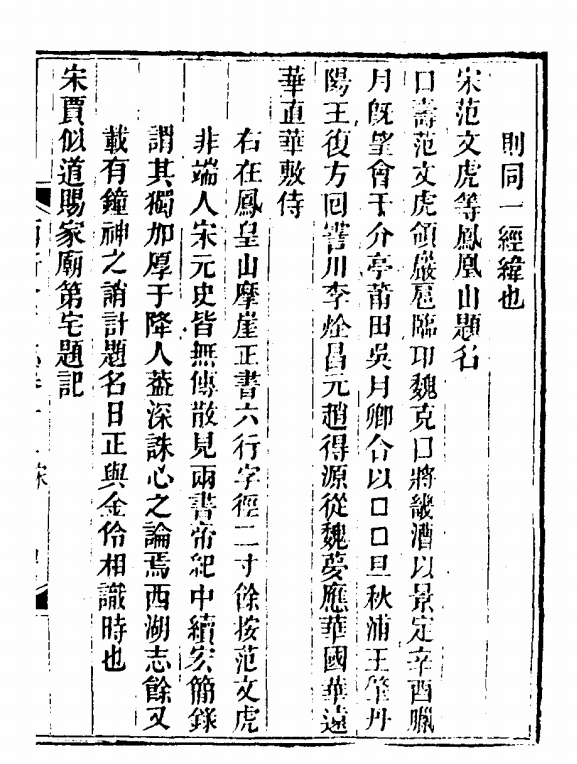 則同一經緯也
宋范文虎等鳳凰山題名
口壽范文虎領巖扈臨邛魏克口將畿漕以景定辛酉臘
月既望會于介亭莆田吳月卿合以口口旦秋浦王肇丹
陽王復方回霅川李烇昌元趙得源從魏夢應華國華遠
華直華敷侍
右在鳳皇山摩崖正書六行字徑二寸餘按范文虎
非端人宋元史皆無傳散見兩書帝紀中續宏簡錄
謂其獨加厚于降人葢深誅心之論焉西湖志餘又
載有鐘神之誚計題名日正與金伶相識時也
宋賈似道賜家廟第宅題記